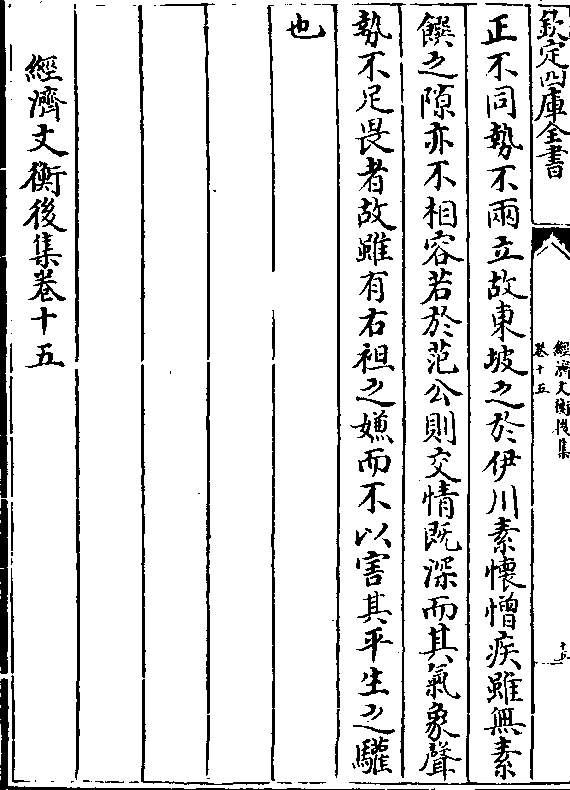 欽定四庫全書
經濟文衡後集
卷十五
十五
正不同勢不兩立故東坡之於伊川素懷憎疾雖無素
饌之隙亦不相容若於范公則交情既深而其氣象聲
勢不足畏者故雖有右袒之嫌而不以害其平生之驩
也
經濟文衡後集卷十五